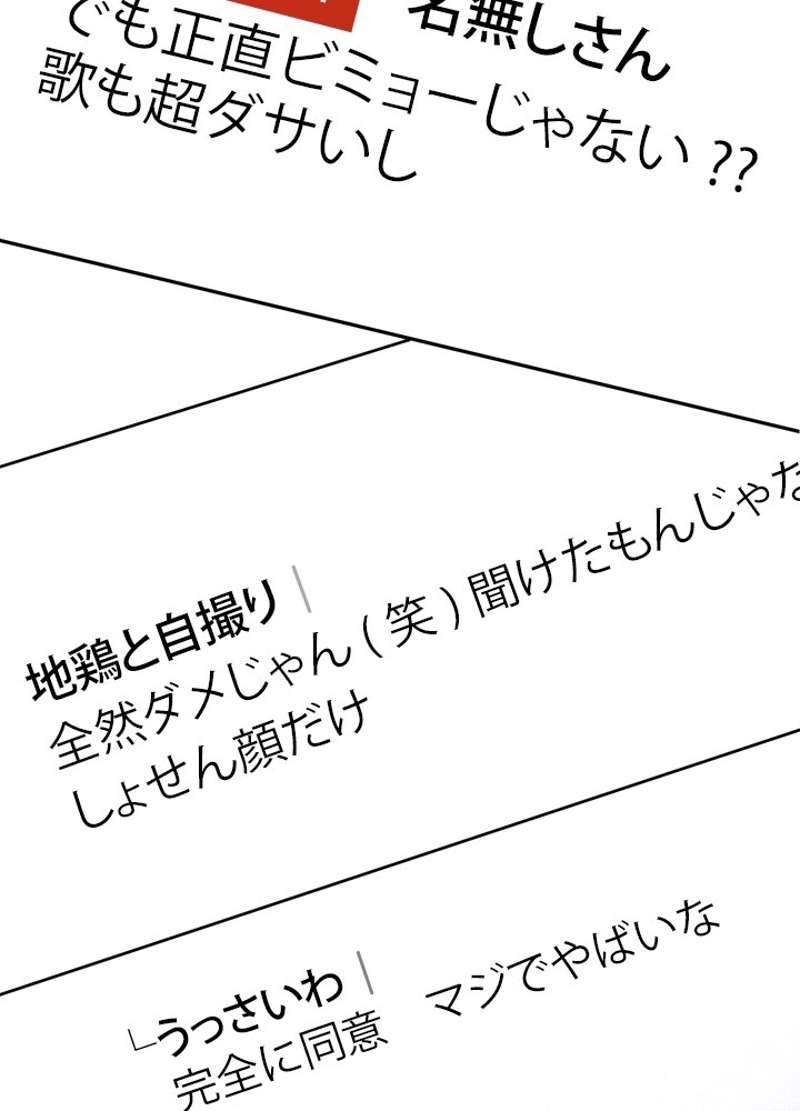 名無しさん
でも正直ビミョーじゃない??
歌も超ダサいし
地鶏と自撮り
全然ダメじゃん(笑)聞けたもんじゃな
しょせん顔だけ
└うっさいわ
完全に同意 マジでやばいな